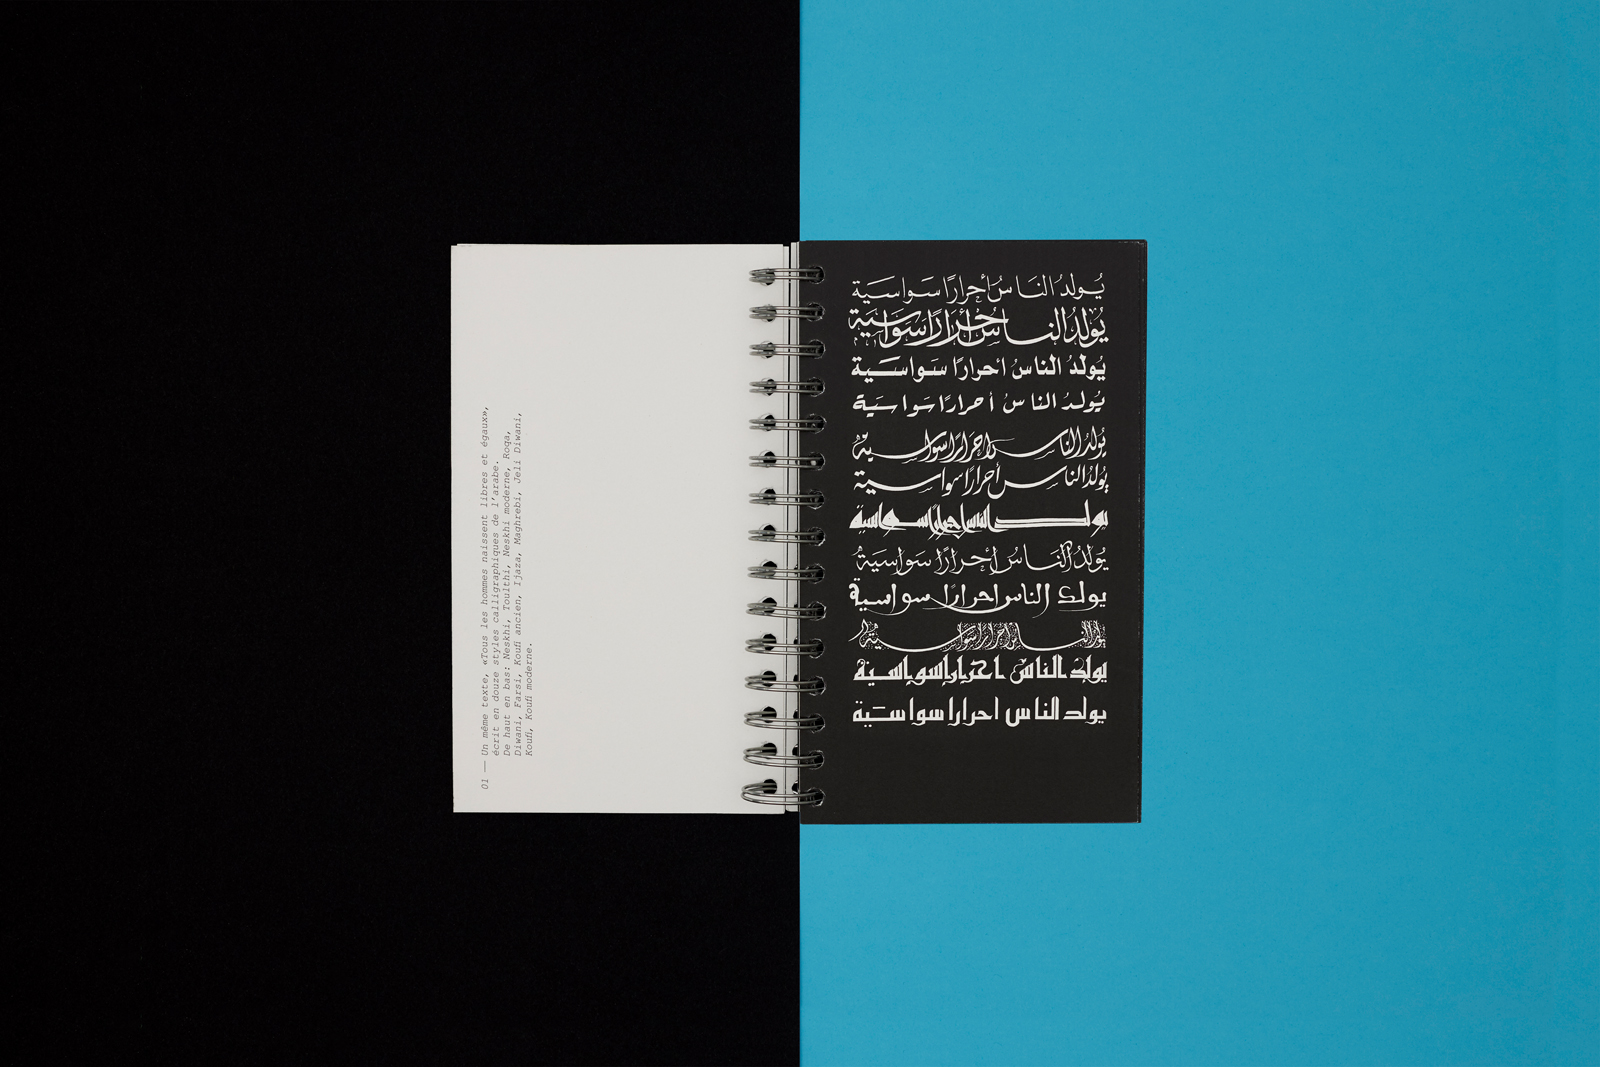 01 — Un même texte, «Tous les hommes naissent libres et égaux»,
écrit en douze styles calligraphiques de l'arabe.
De haut en bas: Neskhi, Toulthi, Neskhi moderne, Roqa,
Diwani, Farsi, Koufi ancien, Ijaza, Maghrebi, Jeli Diwani,
Koufi, Koufi moderne.
يُولدُ النَاسُ أحرارًا سَواسيَة
يُولدُ الناسُ أحرَارًا سَوَاسيَة
يُولدُ الناسُ أحرارًا سَواسيَة
يُولدُ الناسُ أحرارًا سَواسيَة
يُولدُ الناس أحرارًا سواسية
يُولدُ الناس أحرارًا سواسية
يولد الناس احرارا سواسية
يُولدُ النَاسُ أحرارًا سَواسيَة
يولد الناس احرارًا سواسية
يولد الناس احرارا سواسية
يولد الناس احرارا سواسية
يولد الناس احرارا سواسَية